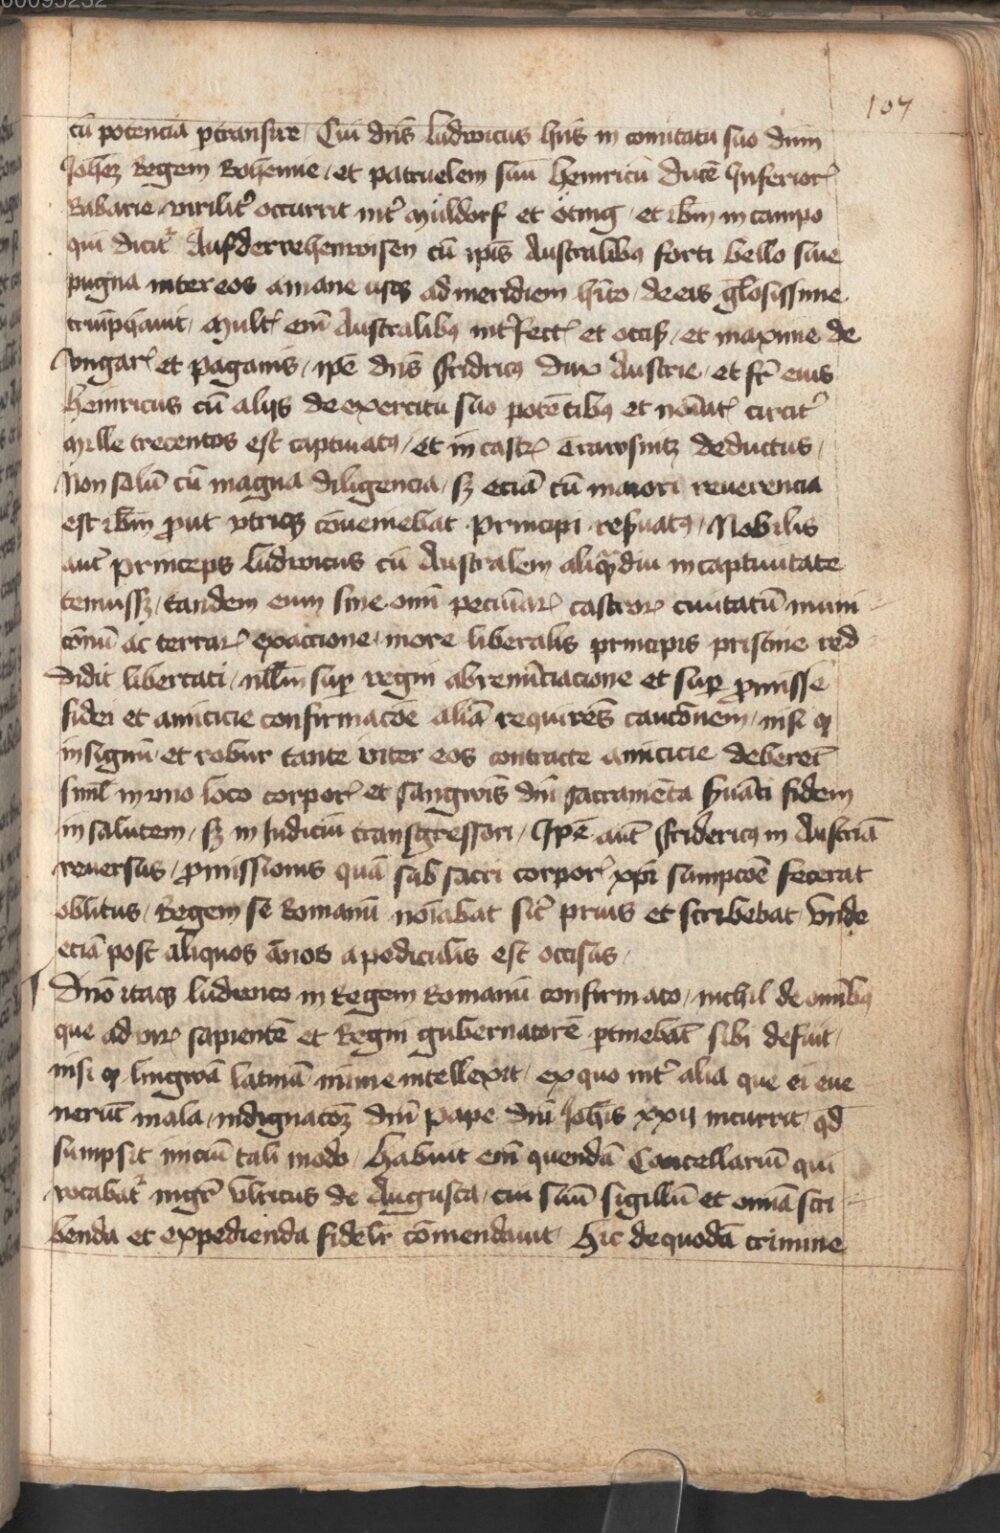 00095232
107
cū potencia ptransire / Cui dn̄s ludwicus hn̄s in comitatu suo dnm̄
Joh̄ez Regem Bohemie / et patruelem suū heinricū ducē Inferior
Babarie virilit̓ occurrit int̓ Müldorf et öting / et ibm̄ in campo
qui dicit̓ Aufderrehenwisen cū ip̄is Australibꝯ forti bello siue
pugna inter eos a mane usqꝫ ad meridiem h̄ito / de eis gl̄osissime
triūphauit / Mult̓ em̄ Australibꝯ int̓fect̓ et occis̓ / et maxime de
Vngar̓ et paganis / ip̄e dn̄s fridricꝯ dux Austrie / et fr̄ eius
Heinricus cū alijs de exercitu suo potētibꝯ et no̅iat̓ circit̓
Mille trecentos est captiuatꝯ / et in castr̓ Trawsnitz deductus /
Non solū cū magna diligencia / sꝫ eciā cū maiori reuerencia
est ibm̄ ꝓut vtriqꝫ cōueniebat principi reſuatꝯ / Nobilis
aut̓ princeps ludwicus cū Australem aliqͣdiu in captiuitate
tenuissꝫ / tandem eum sine om̄i pecuniar̓ castror̓ ciuitatū muni
cōnū ac terrar̓ exaccione / more liberalis principis pristine red
didit libertati / nll̄m suꝑ regni abrenūciacione et suꝑ ꝓmisse
fidei et amicicie confirmacōe aliā requirēs caucōnem / nisi ꝙ
in signū et robur tante inter eos contracte amicicie deberēt
siml̄ in vno loco corpor̓ et sangwīs dn̄i sacramēta ſuāti fidem
in salutem / sꝫ in Iudiciū transgressori / Ip̄e aut̄ fridericꝯ in Austriā
reuersus / ꝓmissionis quā sub sacri corpor̓ xp̄i sumpcōe fecerat
oblitus / Regem se Romanū no̅iabat sic̓ prius et scribebat / vnde
eciā post aliquos ānos a pediculis est occisus /
Dn̄o itaqꝫ ludwico in Regem Romanū confirmato / nichil de om̄ibꝯ
que ad vir̓ sapientē et Regni gubernatorē ꝑtinebāt sibi defuit /
nisi ꝙ lingwā latinā mīme intellexit / ex quo int̓ alia que ei eue
nerūt mala / indignacōꝫ dn̄i pape dn̄i Joh̄is xxij incurrit / qd̄
sumpsit iniciū tali modo / Habuit em̄ quendā Cancellariū qui
vocabat̓ mgr̄ vlricus de Augusta / cui suū sigillū et omīa scri
benda et expedienda fidelr̄ cōmendauit / Hic de quodā crimine